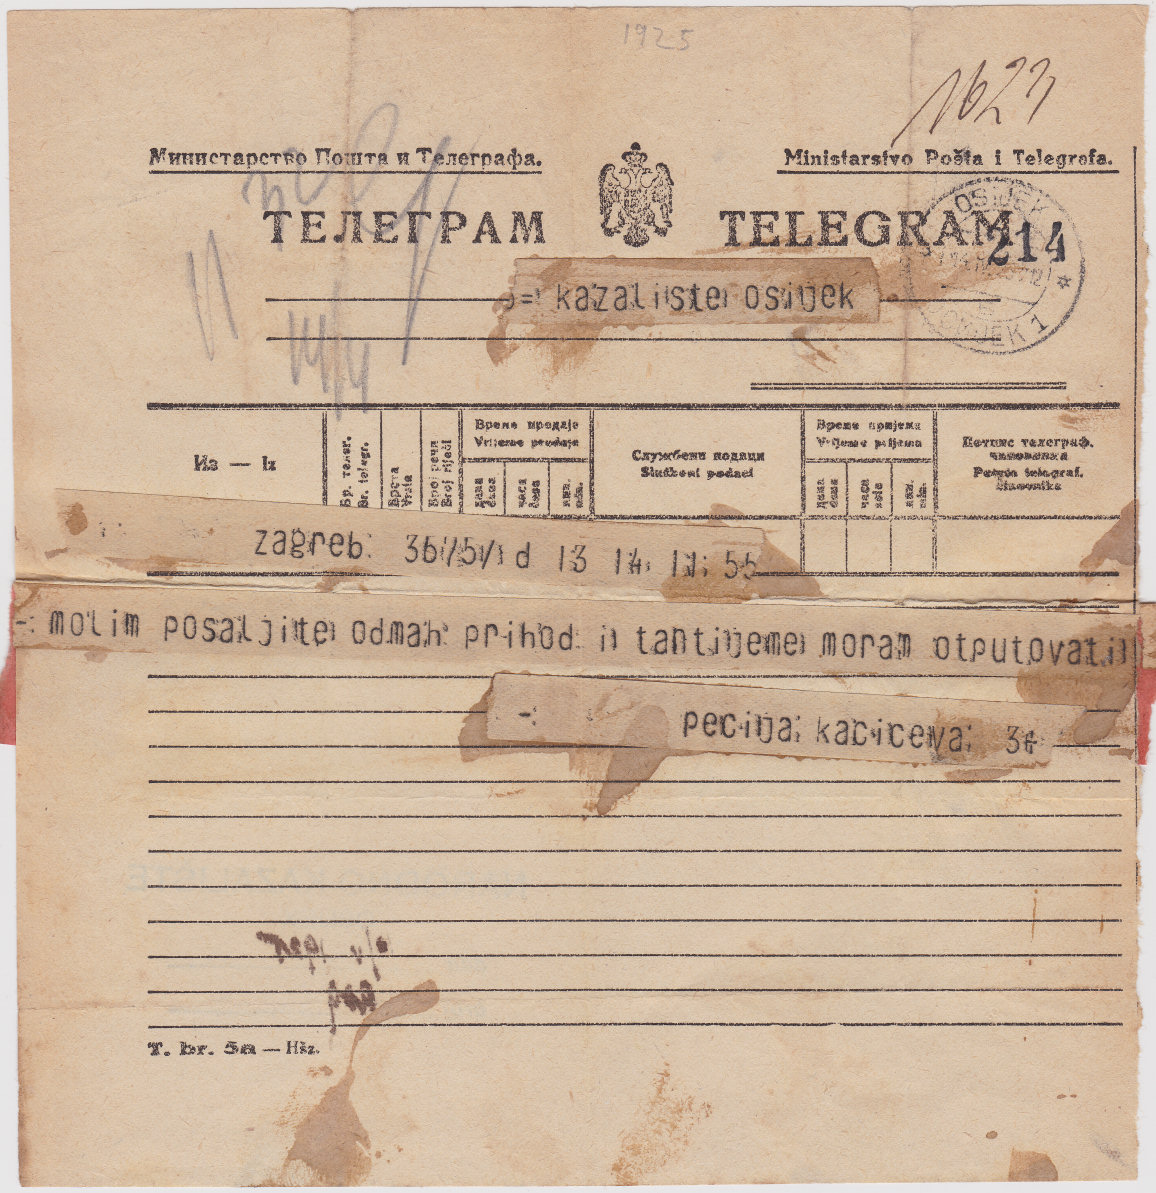 1925
1623
Министарство Пошта и Телеграфа.
Ministarstvo Pošta i Telegrafa.
ТЕЛЕГРАМ
TELEGRAM
214
OSIJEK
OSIJEK 1
= kazaliste osijek
Из — Iz
Бр. телег.
Br. telegr.
Врста
Vrsta
Број речи
Broj riječi
Време предаје
Vrijeme predaje
дана
dana
часа
časa
мин.
min.
Службени подаци
Službeni podaci
Време пријема
Vrijeme prijema
дана
dana
часа
мин.
min.
Потпис телеграф.
чиновника
Potpis telegraf.
činovnika
zagreb 36/75/1 d 13 14 11 55
- molim posaljite odmah prihod i tantijeme moram otputovati
- pecija kaciceva 34
T. br. 5a — Hšz.